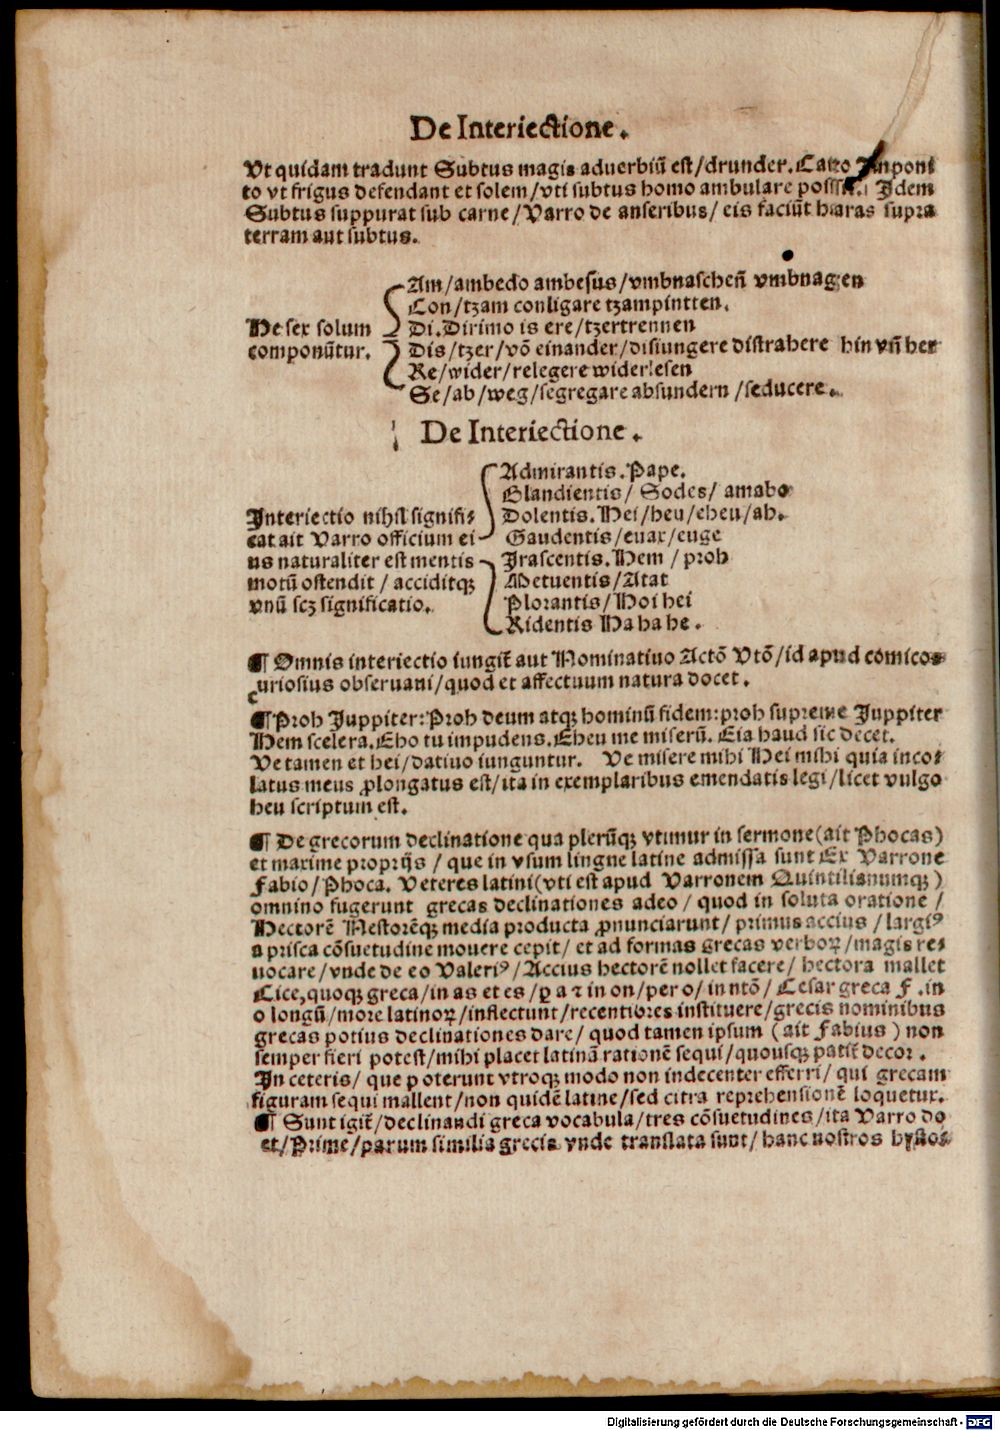 De Interiectione.
Vt quidam tradunt Subtus magis aduerbiū est/drunder. Catto Inponi
to vt frigus defendant et solem/vti subtus homo ambulare Idem
Subtus suppurat sub carne/Varro de anseribus/eis faciūt haras supra
terram aut subtus.
He sex solum
componūtur.
Am/ambedo ambesus/vmbnaschenn vmbnagen
Con/tzam conligare tzampintten.
Di. Dirimo is ere/tzertrennen
Dis/tzer/vō einander/disiungere distrahere hin vn̄ her
Re/wider/relegere widerlesen
Se/ab/weg/segregare absundern/seducere.
De Interiectione.
Interiectio nihil signifi⸗
cat ait Varro officium ei
us naturaliter est mentis
motū ostendit/acciditqꝫ
vnū scꝫ significatio.
Admirantis. Pape.
Blandientis/ Sodes/ amabo
Dolentis. Hei/heu/eheu/ah.
Gaudentis/euax/euge
Irascentis. Hem / proh
Metuentis/Atat
Plorantis/Hoi hei
Ridentis Ha ha he.
¶ Omnis interiectio iungit̄ aut Nominatiuo Actō Vtō/id apud comicos
curiosius obseruani/quod et affectuum natura docet.
¶ Proh Juppiter: Proh deum atqꝫ hominū fidem: proh supreme Juppiter
Hem scelera. Eho tu impudens. Eheu me miserū. Eia haud sic decet.
Ve tamen et hei/datiuo iunguntur. Ve misere mihi Hei mihi quia inco⸗
latus meus ꝓlongatus est/ita in exemplaribus emendatis legi/licet vulgo
heu scriptum est.
¶ De grecorum declinatione qua plerūqꝫ vtimur in sermone (ait Phocas)
et maxime proprijs / que in vsum lingne latine admissa sunt Ex Varrone
Fabio/Phoca. Veteres latini (vti est apud Varronem Quintilianumqꝫ)
omnino fugerunt grecas declinationes adeo / quod in soluta oratione /
Hectorē Nestorēqꝫ media producta ꝓnunciarunt/ primus accius / largiꝰ
a prisca cōsuetudine mouere cepit/ et ad formas grecas verboꝝ/magis re⸗
uocare/vnde de eo Valeriꝰ/Accius hectorē nollet facere/ hectora mallet
Cice, quoqꝫ greca/in as et es/ꝑ a ⁊ in on/per o/in ntō/ Cesar greca F. in
o longū/more latinoꝝ/inflectunt/recentiores instituere/grecis nominibus
grecas potius declinationes dare/ quod tamen ipsum (ait Fabius) non
semper fieri potest/mihi placet latinā rationē sequi/quousqꝫ patit̄ decor.
In ceteris/ que poterunt vtroqꝫ modo non indecenter efferri/ qui grecam
figuram sequi mallent/non quidē latine/sed citra reprehensionē loquetur.
¶ Sunt igit̄/declinandi greca vocabula/tres cōsuetudines/ita Varro do
et/Prime/parum similia grecis vnde translata sunt/hanc nostros
Digitalisierung gefördert durch die Deutsche Forschungsgemeinschaft - DFG